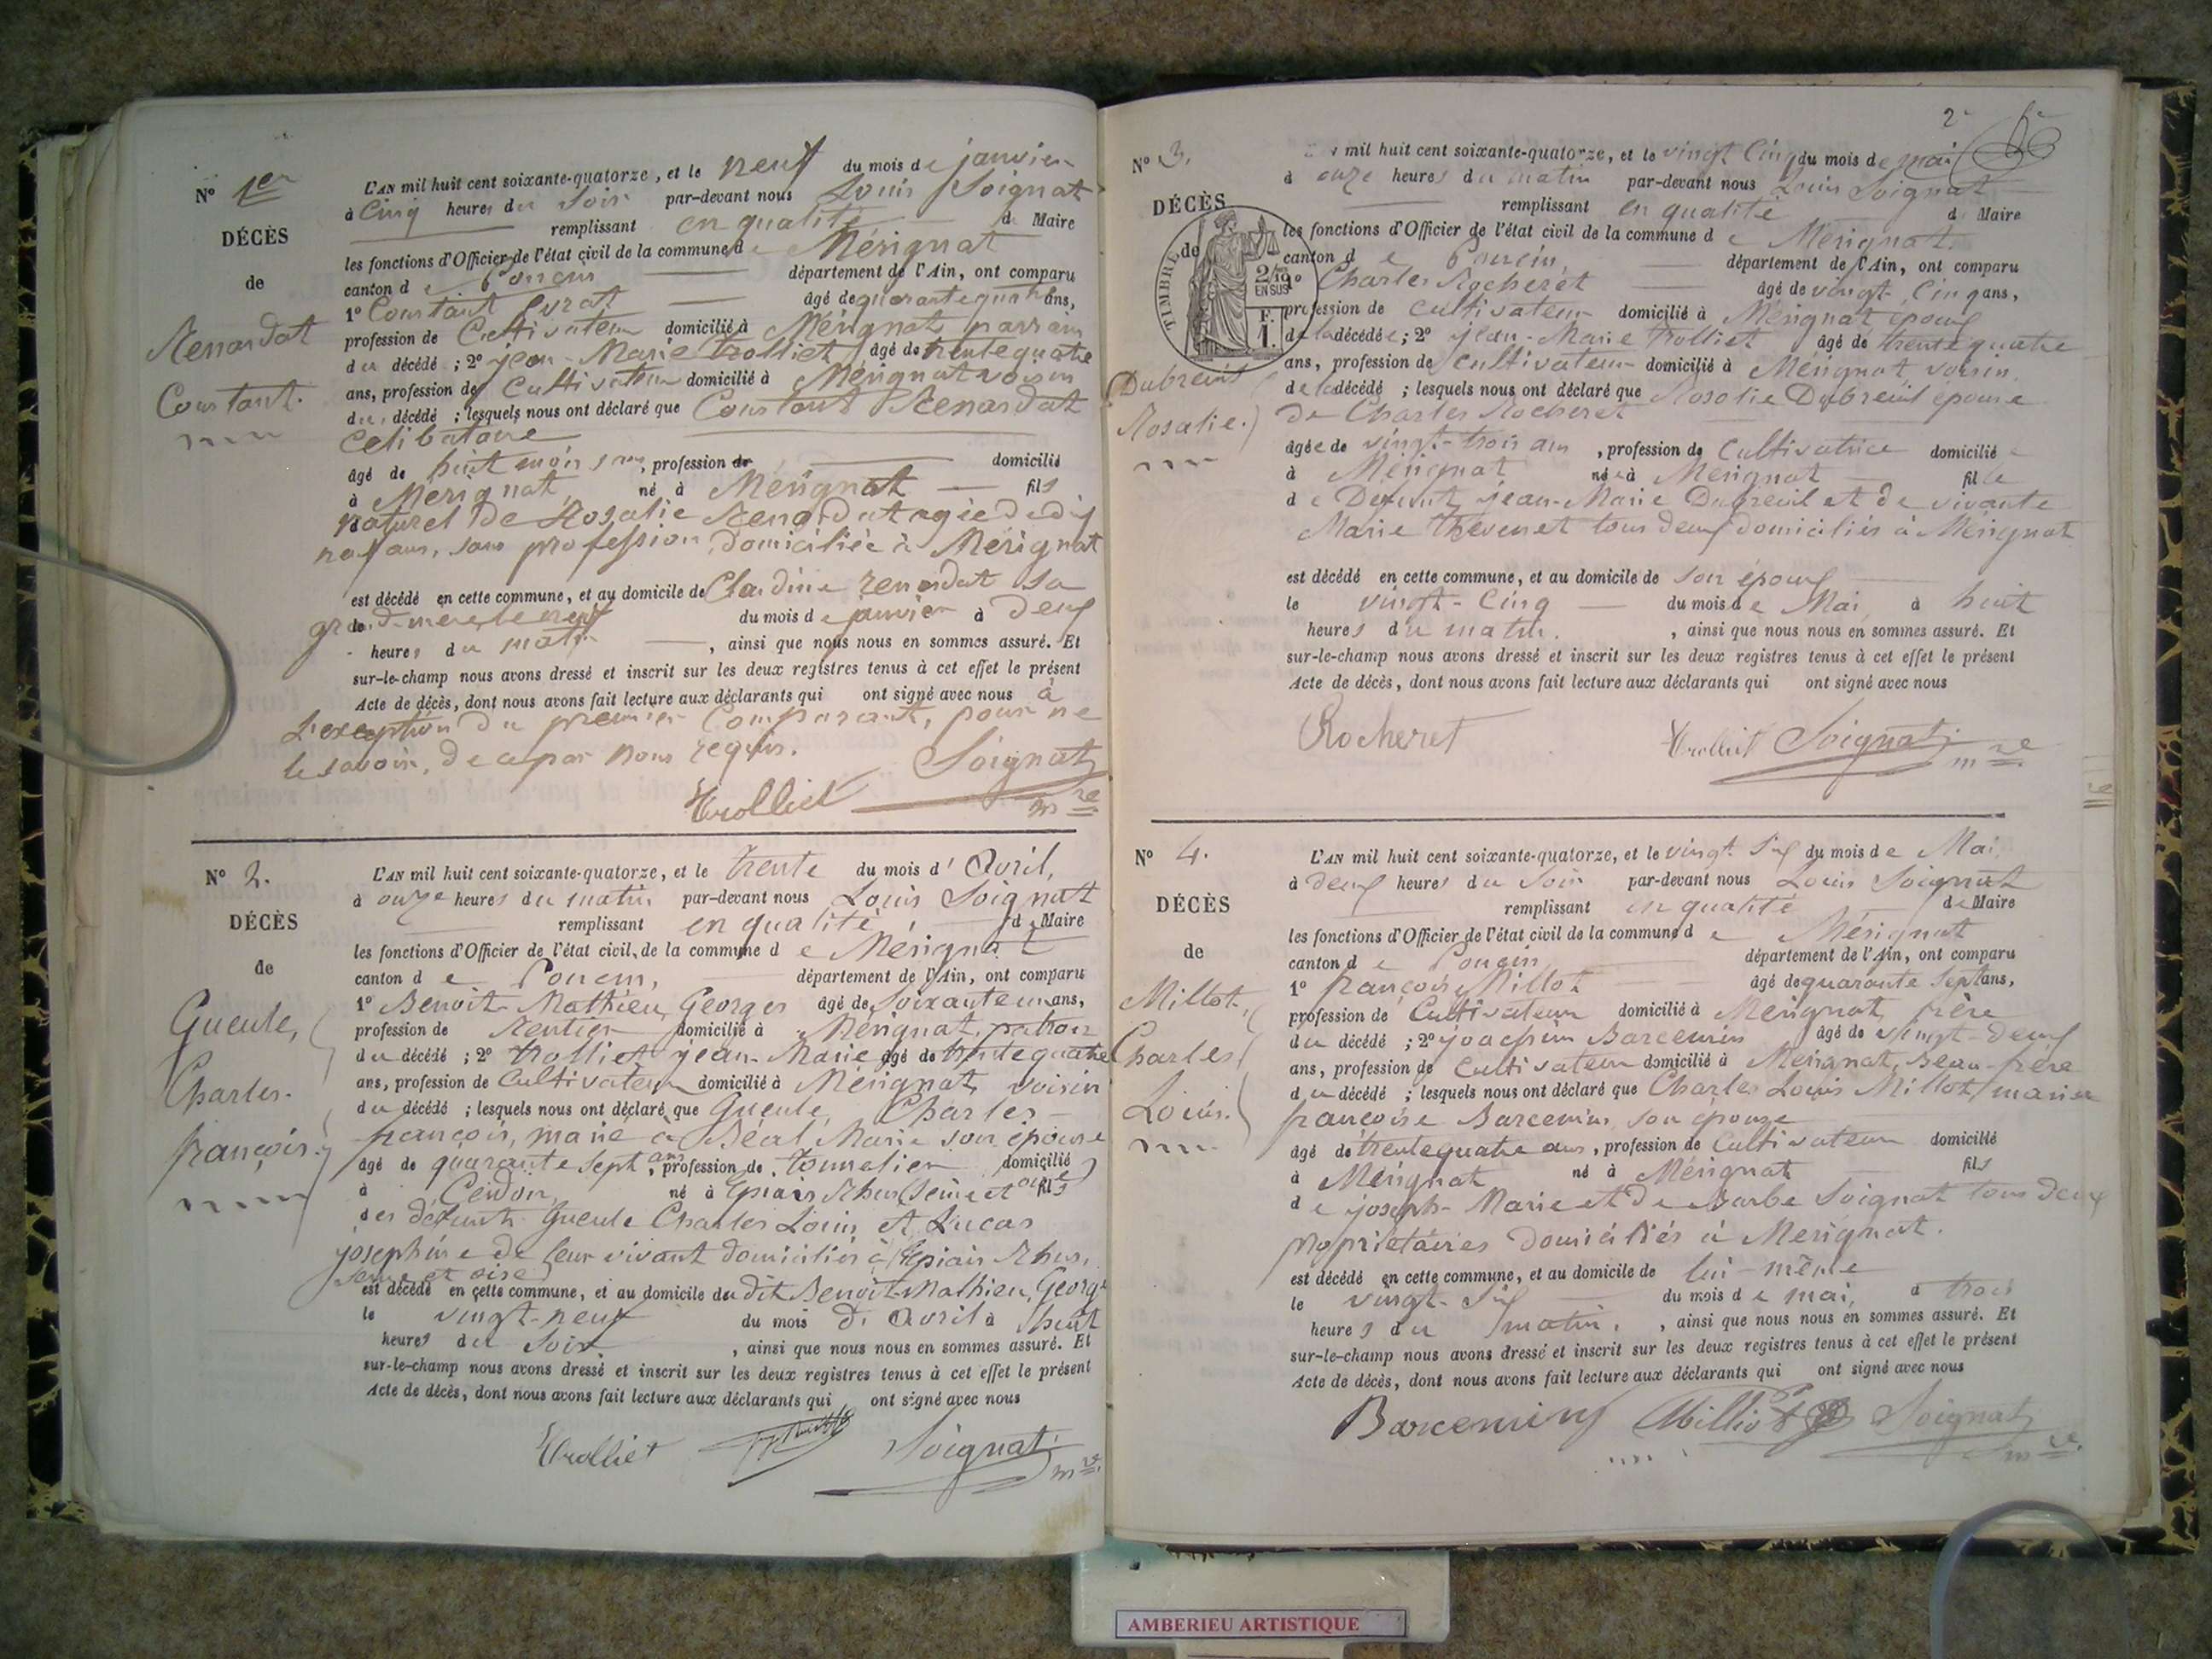 N° 1er
DÉCÈS
de
Renardat
Constant.
L'AN mil huit cent soixante-quatorze, et le neuf du mois de janvier
à Cinq heures du Soir par-devant nous Louis Soignat
remplissant en qualité de Maire
les fonctions d'Officier de l'état civil de la commune de Mérignat
canton de Poncin département de l'Ain, ont comparu
1° Constant Curat âgé de quarante quatre ans,
profession de Cultivateur domicilié à Mérignat parrain
du décédé ; 2° jean-Marie Trolliet âgé de trente quatre
ans, profession de Cultivateur domicilié à Mérignat voisin
du décédé ; lesquels nous ont déclaré que Constant Renardat
Celibataire
âgé de huit mois, profession de domicilié
à Mérignat, né à Mérignat fils
naturel de Rosalie Renardat agée de dix
neuf ans, sans profession, domiciliée à Mérignat
est décédé en cette commune, et au domicile de Claudine renardat sa
grand-mere, le neuf du mois de janvier à deux
heures du matin, ainsi que nous nous en sommes assuré. Et
sur-le-champ nous avons dressé et inscrit sur les deux registres tenus à cet effet le présent
Acte de décès, dont nous avons fait lecture aux déclarants qui ont signé avec nous à
l'exception du premier Comparant, pour ne
le savoir, de ce par nous requis.
Soignat
Trolliet mre
N° 2.
DÉCÈS
de
Gueule,
Charles-
françois.
L'AN mil huit cent soixante-quatorze, et le trente du mois d'Avril,
à onze heures du matin par-devant nous Louis Soignat
remplissant en qualité, de Maire
les fonctions d'Officier de l'état civil de la commune de Mérignat
canton de Poncin, département de l'Ain, ont comparu
1° Benoit-Mathieu Georges âgé de Soixante un ans,
profession de Rentier domicilié à Mérignat, patron
du décédé ; 2° Trolliet jean-Marie âgé de trente quatre
ans, profession de Cultivateur domicilié à Mérignat, voisin
du décédé ; lesquels nous ont déclaré que Gueule, Charles-
françois, marié à Béal Marie son épouse
âgé de quarante sept ans, profession de tonnelier domicilié
à Cerdon, né à Epiais Rhus (Seine et oise) fils
des défunts Gueule Charles Louis et Lucas
josephine de leur vivant domiciliés à (Epiais Rhus,
Seine et oise)
est décédé en cette commune, et au domicile du dit Benoit-Mathieu, George
le vingt-neuf du mois d'Avril à huit
heures du Soir, ainsi que nous nous en sommes assuré. Et
sur-le-champ nous avons dressé et inscrit sur les deux registres tenus à cet effet le présent
Acte de décès, dont nous avons fait lecture aux déclarants qui ont signé avec nous
Trolliet Soignat
mre
2e
N° 3.
DÉCÈS
de
TIMBRE
2/10
EN SUS
F.
1.
Dubreuil
Rosalie.
mil huit cent soixante-quatorze, et le vingt Cinq du mois de mai
à onze heures du matin par-devant nous Louis Soignat
remplissant en qualité de Maire
les fonctions d'Officier de l'état civil de la commune de Mérignat.
canton de Poncin, département de l'Ain, ont comparu
1° Charles Rocheret âgé de vingt-Cinq ans,
profession de Cultivateur domicilié à Mérignat époux
de la décédée ; 2° jean-Marie Trolliet âgé de trente quatre
ans, profession de Cultivateur domicilié à Mérignat, voisin
de la décédé ; lesquels nous ont déclaré que Rosalie Dubreuil épouse
de Charles Rocheret
âgée de vingt-trois ans, profession de Cultivatrice domiciliée
à Mérignat née à Mérignat fille
de Défunt jean-Marie Dubreuil et de vivante
Marie Thevenet tous deux domiciliés à Mérignat
est décédé en cette commune, et au domicile de son époux
le vingt-Cinq du mois de Mai, à huit
heures du matin. , ainsi que nous nous en sommes assuré. Et
sur-le-champ nous avons dressé et inscrit sur les deux registres tenus à cet effet le présent
Acte de décès, dont nous avons fait lecture aux déclarants qui ont signé avec nous
Rocheret Trolliet Soignat
mre
N° 4.
DÉCÈS
de
Millot,
Charles
Louis.
L'AN mil huit cent soixante-quatorze, et le vingt Six du mois de Mai,
à deux heures du Soir par-devant nous Louis Soignat
remplissant en qualité de Maire
les fonctions d'Officier de l'état civil de la commune de Mérignat
canton de Poncin département de l'Ain, ont comparu
1° françois Millot âgé de quarante Sept ans,
profession de Cultivateur domicilié à Mérignat, frère
du décédé ; 2° joachim Barcenin âgé de vingt-deux
ans, profession de Cultivateur domicilié à Mérignat, Beau-frère
du décédé ; lesquels nous ont déclaré que Charles Louis Millot, marié à
françoise Barcenin, son épouse
âgé de trente quatre ans, profession de Cultivateur domicilié
à Mérignat né à Mérignat fils
de joseph-Marie et de Barbe Soignat tous deux
propriétaires domiciliés à Mérignat.
est décédé en cette commune, et au domicile de lui-même
le vingt-Six du mois de mai, à trois
heures du matin. , ainsi que nous nous en sommes assuré. Et
sur-le-champ nous avons dressé et inscrit sur les deux registres tenus à cet effet le présent
Acte de décès, dont nous avons fait lecture aux déclarants qui ont signé avec nous
Barcenin Milliot Soignat
mre
AMBERIEU ARTISTIQUE